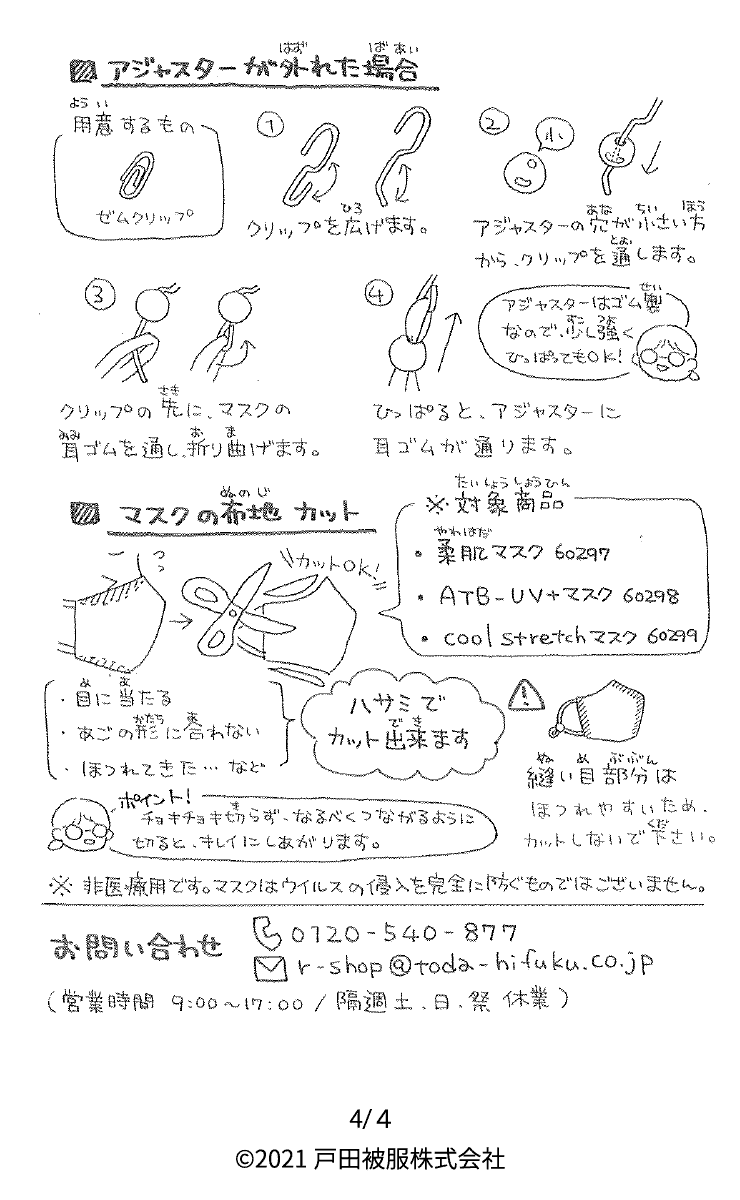 アジャスターが外れた場合
はず ばあい
用意するもの
ようい
ゼムクリップ
①
クリップを広げます。
ひろ
②
小
アジャスターの穴が小さい方
あな ちい ほう
から、クリップを通します。
とお
③
クリップの先に、マスクの
さき
耳ゴムを通し、折り曲げます。
みみ お ま
④
アジャスターはゴム製
せい
なので、少し強く
すこ つよ
ひっぱってもOK!
ひっぱると、アジャスターに
耳ゴムが通ります。
マスクの布地カット
ぬのじ
カットOK!
※対象商品
たいしょうしょうひん
・柔肌マスク 60297
やわはだ
・ATB-UV+マスク 60298
・cool stretchマスク 60299
・目に当たる
め あ
・あごの形に合わない
かたち あ
・ほつれてきた…など
ハサミで
カット出来ます
でき
縫い目部分は
ぬ め ぶぶん
ほつれやすいため、
カットしないで下さい。
くだ
ポイント!
チョキチョキ切らず、なるべくつながるように
き
切ると、キレイにしあがります。
※非医療用です。マスクはウイルスの侵入を完全に防ぐものではございません。
お問い合わせ
0120-540-877
r-shop@toda-hifuku.co.jp
(営業時間 9:00~17:00 / 隔週土、日、祭 休業)
4/4
©2021 戸田被服株式会社